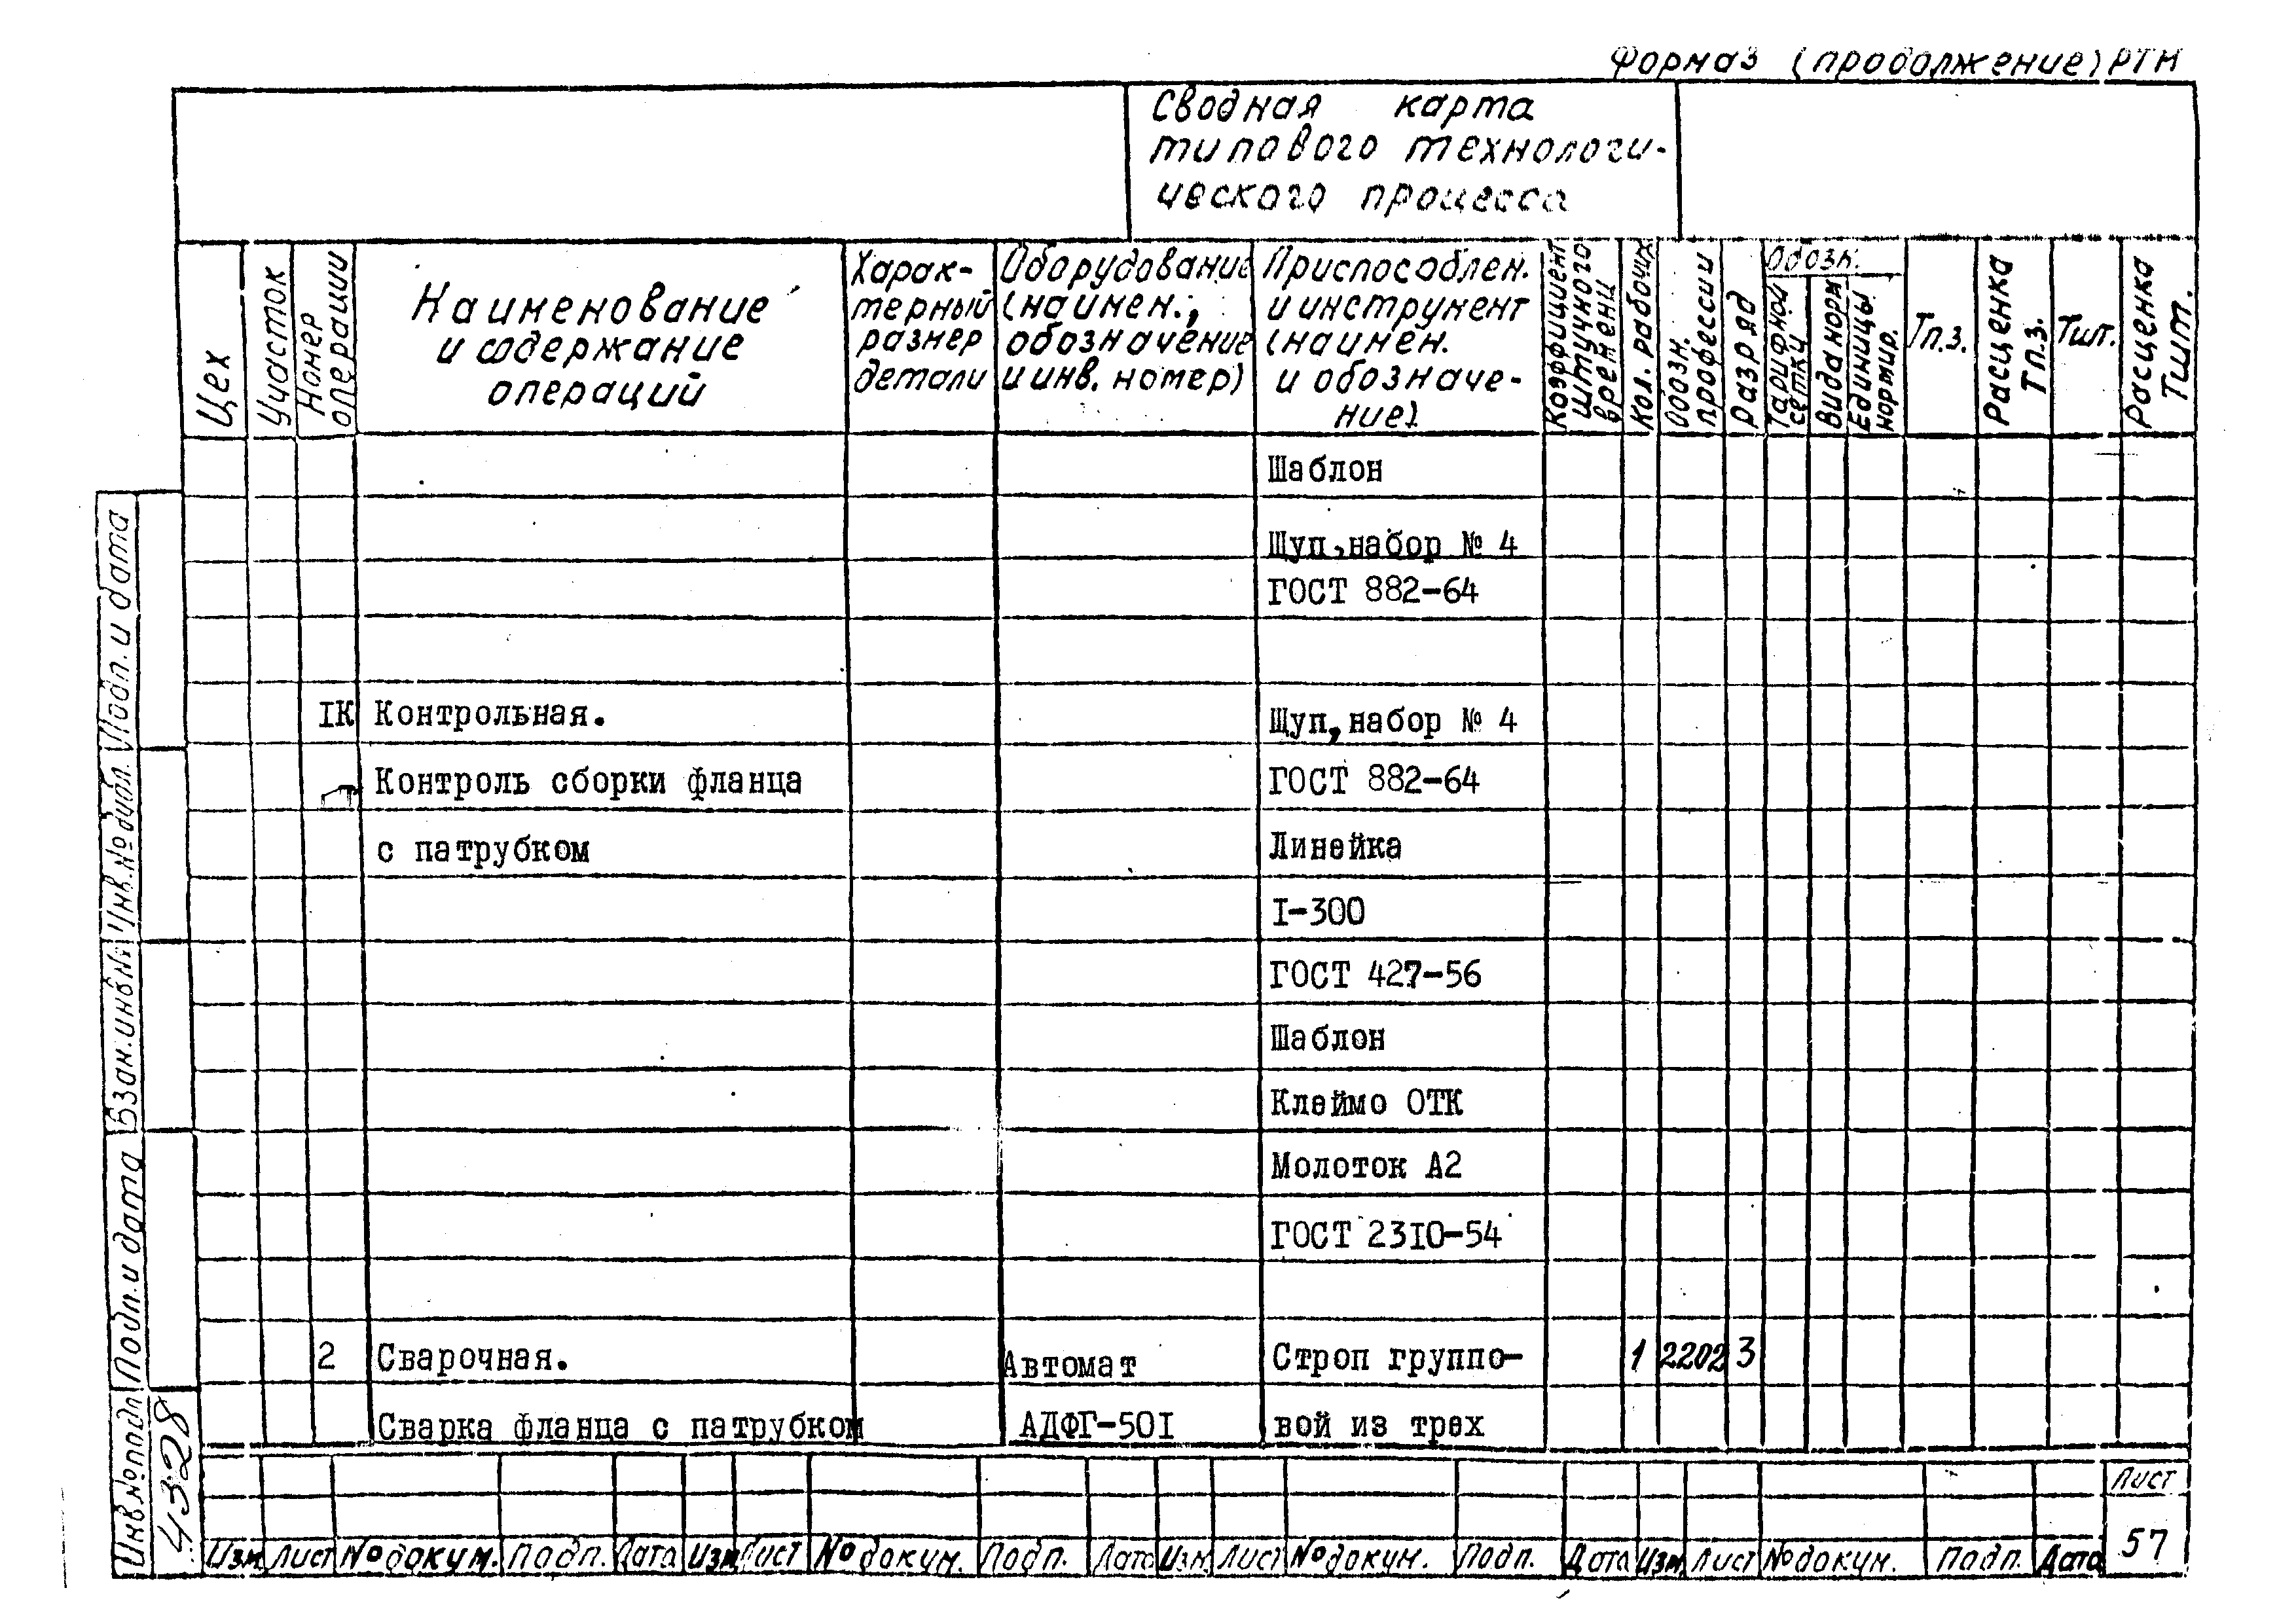 Форма 3 (продолжение) РТМ
Сводная карта
типового технологи-
ческого процесса
Цех
Участок
Номер
операции
Наименование
и содержание
операций
Харак-
терный
размер
детали
Оборудование
(наимен.,
обозначение
и инв. номер)
Приспособлен.
и инструмент
(наимен.
и обозначе-
ние)
Коэффициент
штучного
времени
Кол. рабочих
Обозн.
профессии
Разряд
Обозн.
Тарифной
сетки
Вида норм
Единицы
нормир.
Тп.з.
Расценка
Тп.з.
Тшт.
Расценка
Тшт.
Шаблон
Щуп, набор № 4
ГОСТ 882-64
IК Контрольная. Щуп, набор № 4
Контроль сборки фланца ГОСТ 882-64
с патрубком Линейка
I-300
ГОСТ 427-56
Шаблон
Клеймо ОТК
Молоток А2
ГОСТ 23I0-54
2 Сварочная. Автомат Строп группо- 1 2202 3
Сварка фланца с патрубком АДФГ-50I вой из трех
Подп. и дата
Инв. № дубл.
Взам. инв. №
Подп. и дата
Инв. № подл.
4328
Изм. Лист № докум. Подп. Дата Изм. Лист № докум. Подп. Дата Изм. Лист № докум. Подп. Дата Изм. Лист № докум. Подп. Дата
Лист
57